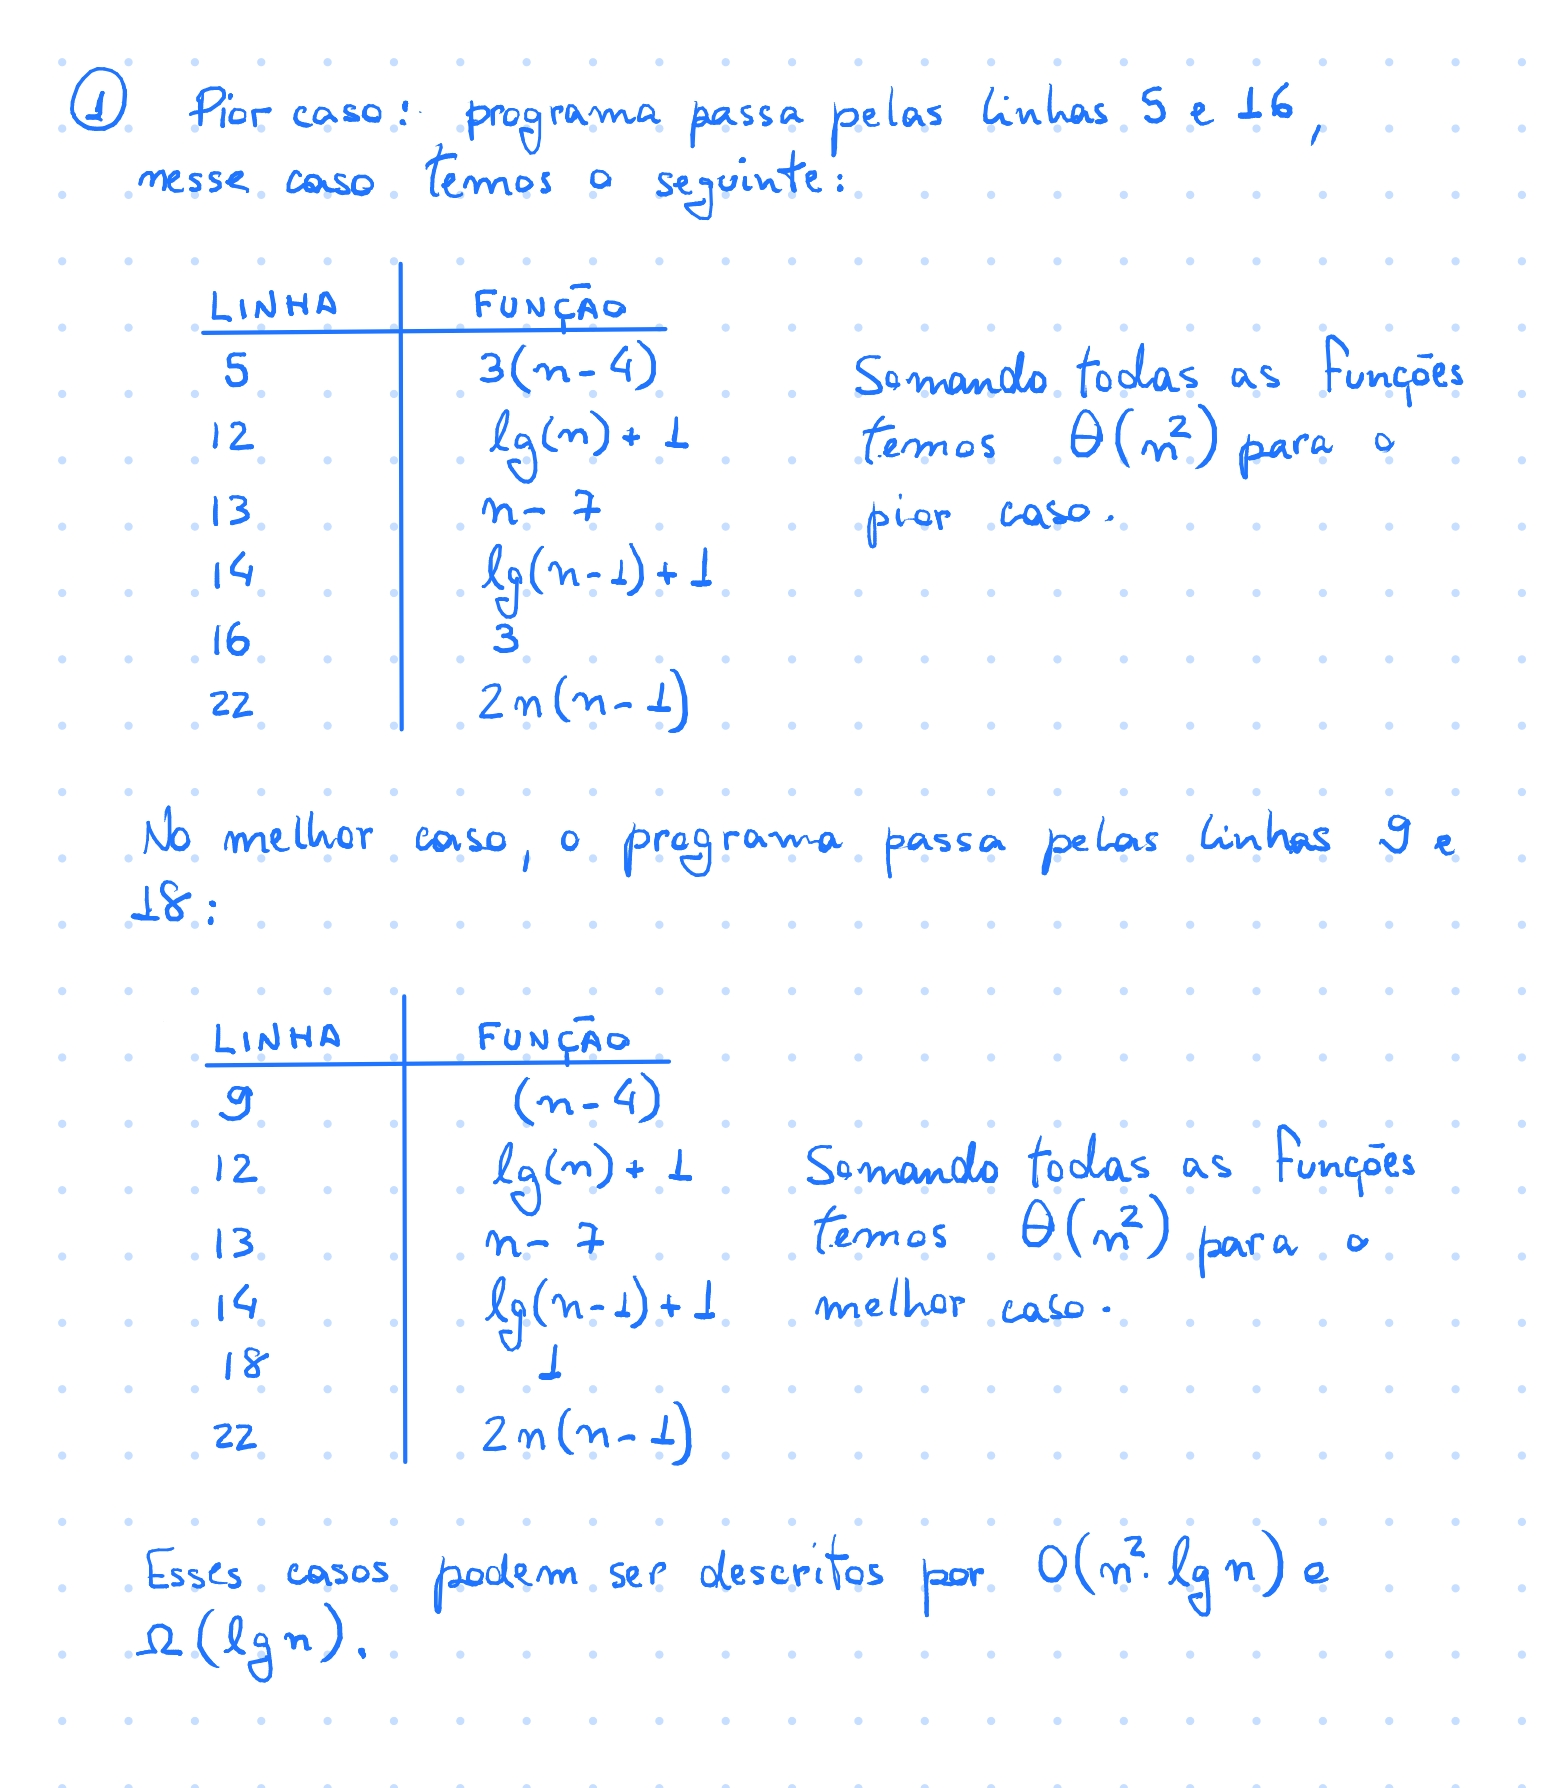 1 Pior caso: programa passa pelas linhas 5 e 16,
nesse caso temos o seguinte:
LINHA FUNÇÃO
5 3(n-4)
12 lg(n)+1
13 n-7
14 lg(n-1)+1
16 3
22 2n(n-1)
Somando todas as funções
temos θ(n²) para o
pior caso.
No melhor caso, o programa passa pelas linhas 9 e
18:
LINHA FUNÇÃO
9 (n-4)
12 lg(n)+1
13 n-7
14 lg(n-1)+1
18 1
22 2n(n-1)
Somando todas as funções
temos θ(n²) para o
melhor caso.
Esses casos podem ser descritos por O(n²·lg n) e
Ω(lg n).